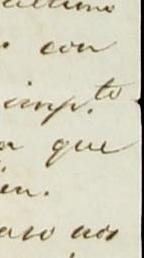 ultimo
con
imp.to
que
en.
aso nos